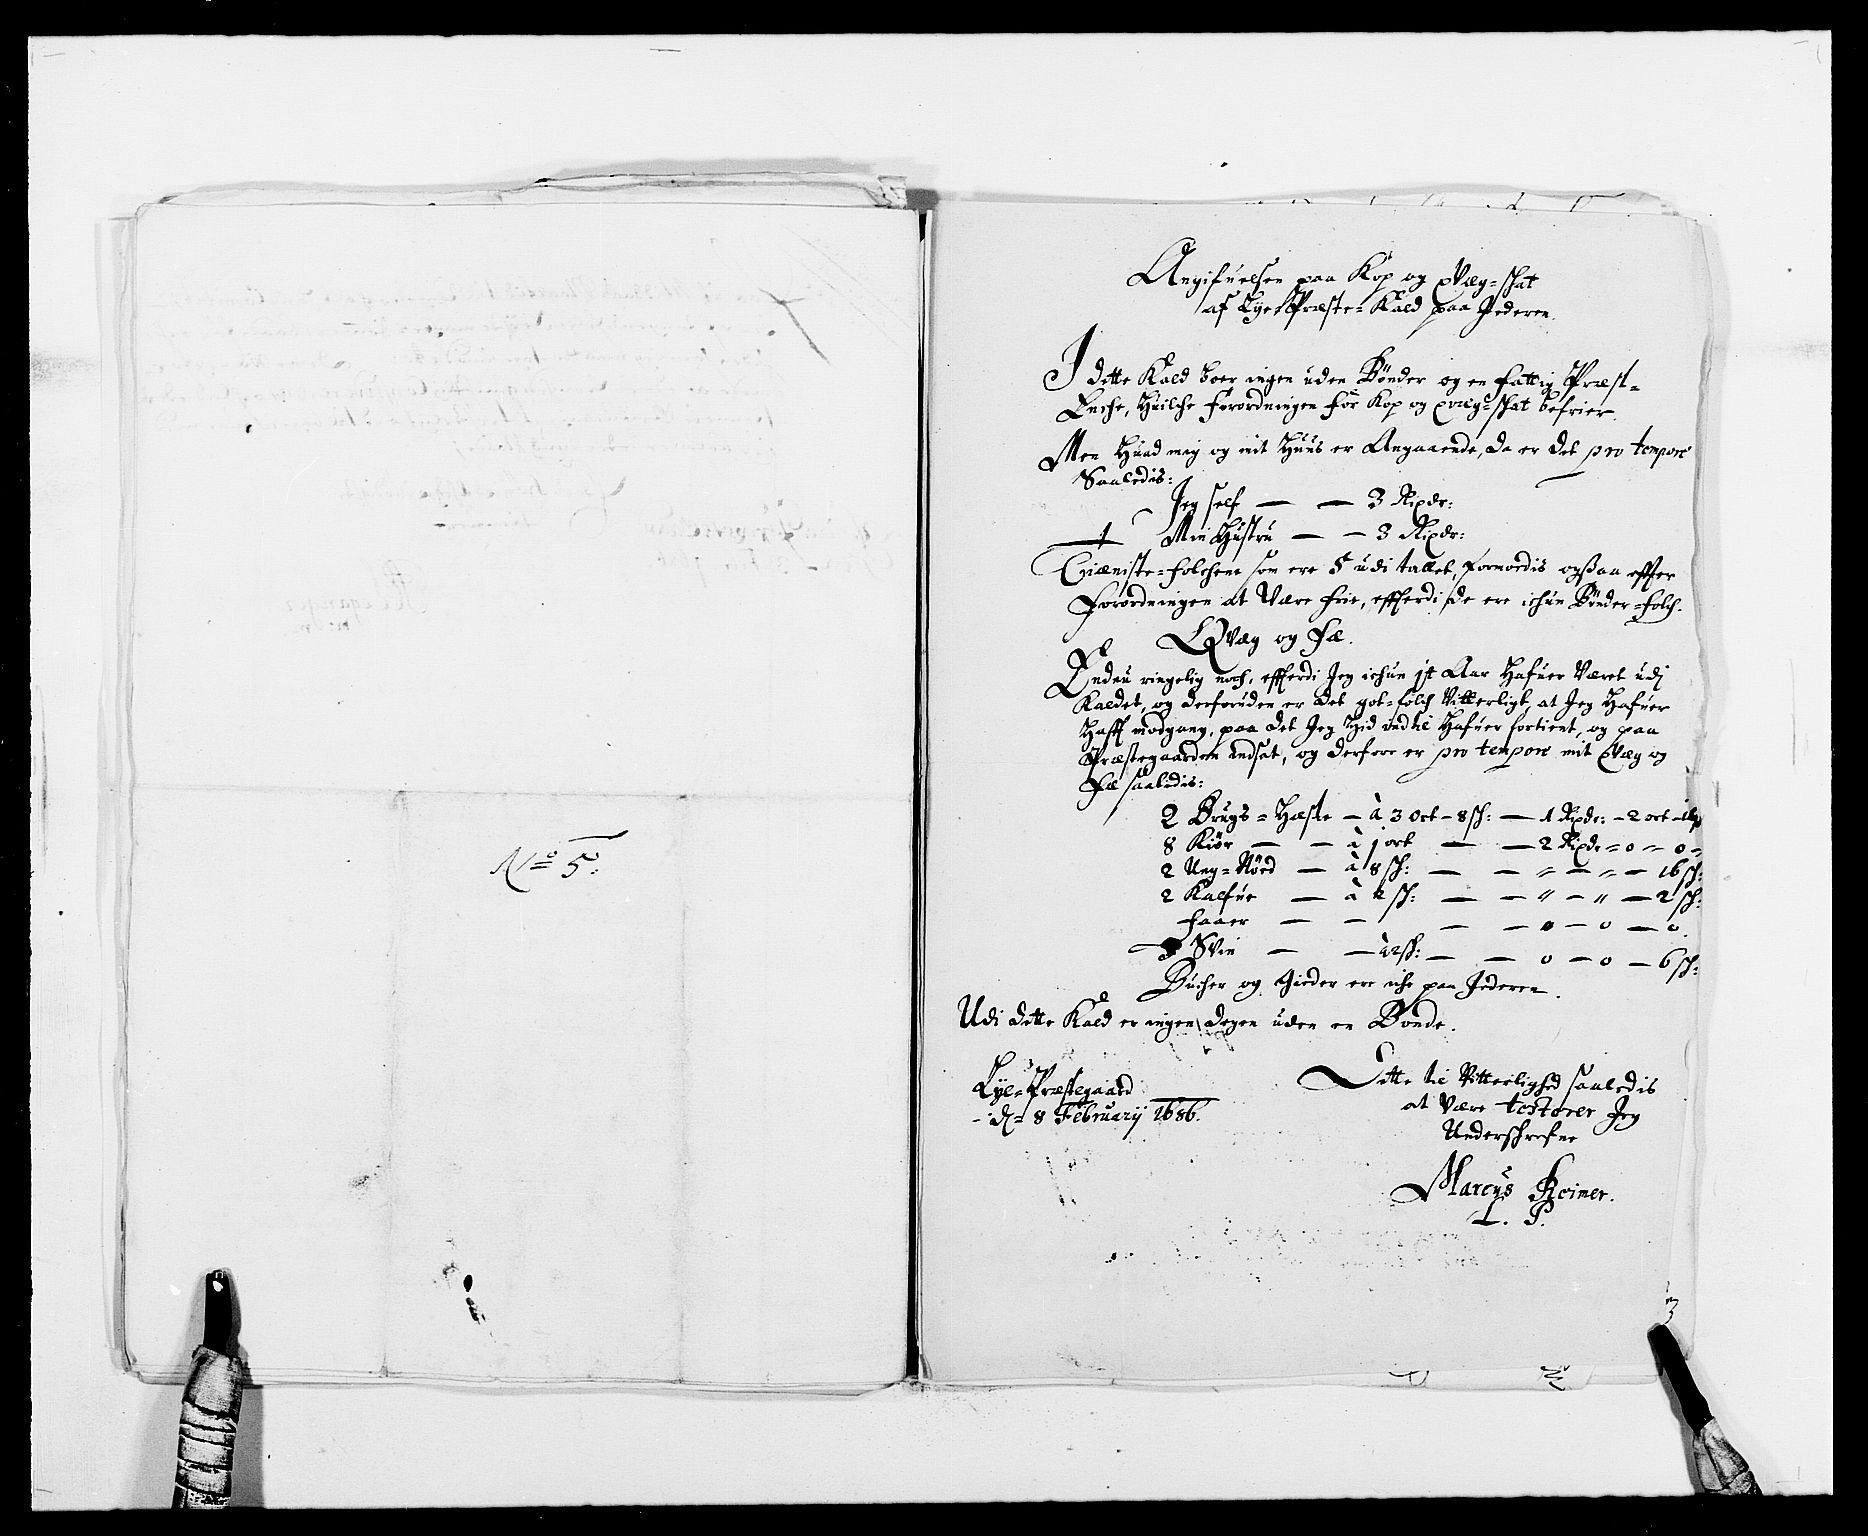 No 5:
Angifuelsen paa Kop og qvæg-skat
af Lye Præste-Kald paa Jederen.
I dette Kald boer ingen uden Bønder og en fattig Præst-
Enche, Huilche Forordningen for Kop og qvæg-skat befrier.
Men Huad mig og mit Huus er Angaaende, da er det pro tempore
Saaledis:
Jeg self — — 3 Rixdr:
Min Hustru — — 3 Rixdr:
Tiæniste-folchene som ere 5 udi tallet, formordis ogsaa effter
Forordningen at Være frie, effterdi de ere ichun Bønder-folch.
Qvæg og Fæ.
Endnu ringelig noch, effterdi Jeg ichun jt Aar Hafuer Været udi
Kaldet, og derforuden er det got-folch Vitterligt, at Jeg Hafuer
Hafft modgang, paa det Jeg Hid indtil Hafuer fortient, og paa
Præstegaarden indsat, og derfore er pro tempore mit qvæg og
Fæ saaledis:
2 Brugs-Hæste — à 3 Ort - 8 sh: — 1 Rixdr: - 2 ort - 16
8 Kiør — — à j ort — — 2 Rixdr = 0 = 0 =
2 Ung-Nød — à 8 sh: — — " — " — 16 sh:
2 Kalfue — à 2 sh: — — " — " — 2 sh:
Faaer — — — — — 0 — 0
3 Svin — — à 2 sh: — — 0 — 0 — 6 sh:
Bucher og Gieder ere iche paa Jederen.
Udi dette Kald er ingen Degen uden en Bonde.
Lye-Præstegaard
d. 8 Februarij 1686.
Dette til Vitterlighed saaledis
at Være testerer Jeg
Underschrefne
Marcus Reimer.
L. P.